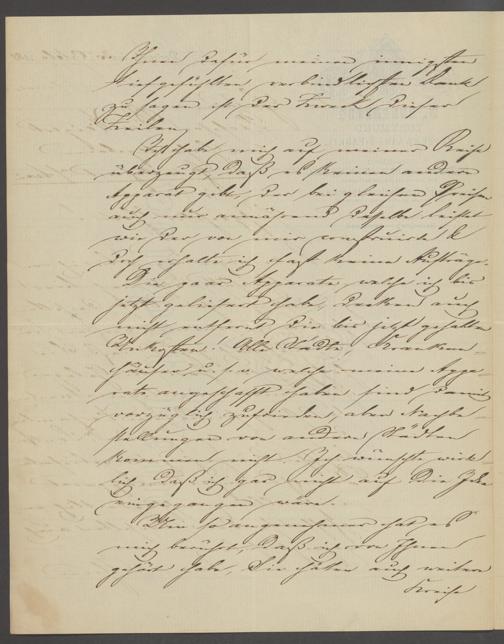 Ihnen dafür meinen innigsten
tiefgefühlten verbindlichsten Dank
zu sagen ist der Zweck dieser
Zeilen.
Ich habe mich auf meiner Reise
überzeugt, daß es keinen andern
Apparat gibt, der bei gleichem Preise
auch nur annähernd dasselbe leistet
wie der von mir construirte &
doch erhalte ich fast keine Aufträge.
Die paar Apparate, welche ich bis
jetzt geliefert habe, decken auch
nicht entfernt die bis jetzt gehabten
Unkosten! Alle Städte, Kranken-
häuser u. s. w. welche meine Appa-
rate angeschafft haben sind damit
vorzüglich zufrieden, aber Nachbe-
stellungen von andern Städten
kommen nicht. Ich wünschte wirk-
lich, daß ich gar nicht auf die Idee
eingegangen wäre.
Um so angenehmer hat es
mich berührt, daß ich von Ihnen
gehört habe, Sie hätten auch weitere
Kreise